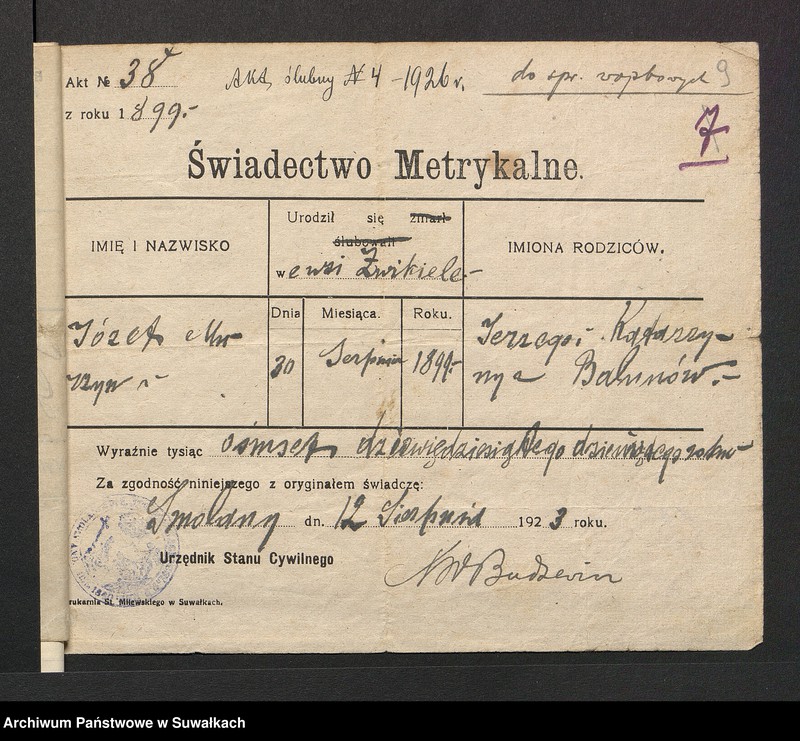 Akt № 38
Akt ślubny № 4 - 1926 r.
do spr. 9
z roku 1899.-
7
Świadectwo Metrykalne.
IMIĘ I NAZWISKO
Urodził się zmarł
ślubowali
w e wsi Żwikiele.-
IMIONA RODZICÓW.
Dnia
Miesiąca.
Roku.
Józef
30
Sierpnia
1899.-
Jerzego i Katarzy-
ny
Wyraźnie tysiąc ośmset dziewięćdziesiątego dziewiątego roku
Za zgodność niniejszego z oryginałem świadczę:
Smolany dn. 12 Sierpnia 1923 roku.
Urzędnik Stanu Cywilnego
rukarnia St. Milewskiego w Suwałkach.
Archiwum Państwowe w Suwałkach